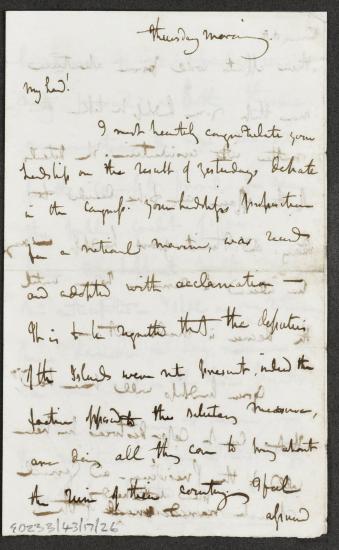 Thursday morning
My Lord!
I most heartily congratulate your
Lordship on the result of yesterdays debate
in the congress. Your Lordships proposition
for a national marine, was received
and adopted with acclamation —
It is to be regretted that the deputies
of the Islands were not present, indeed the
faction opposed to the salutary measure,
are doing all they can to bring about
the ruin of their country. I feel
assured
E0233/43/7/26